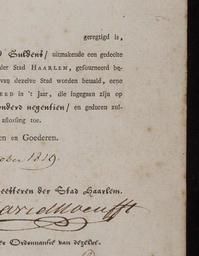 geregtigd is,
Guldens/ uitmakende een gedeelte
der Stad HAARLEM, gefourneerd be-
van dezelve Stad worden betaald, eene
in 't jaar, die ingegaan zijn op
onderd negentien/ en geduren zul-
aflossing toe.
en Goederen.
ober 1819.
der Stad Haarlem.
Ordonnantie van dezelve.